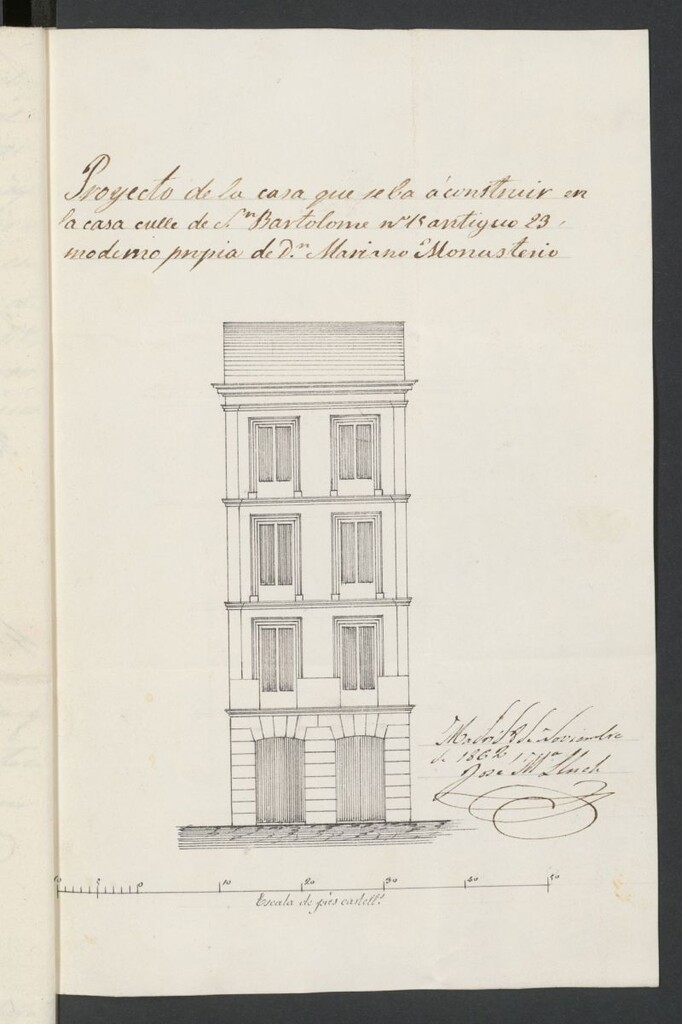 Proyecto de la casa que se ba á construir en
la casa calle de Sn Bartolome nº antiguo 23
moderno propia de Dn Mariano Monasterio
Madrid 8 de Noviembre
de 1862
Jose Mª Lluch
10 5 0 10 20 30 40 50
Escala de pies castells